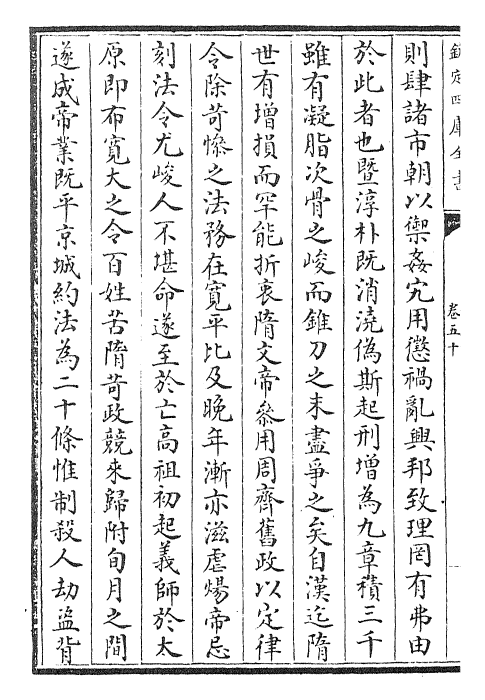 欽定四庫全書
卷五十
則肆諸市朝以禦姦宄用懲禍亂興邦致理罔有弗由
於此者也暨淳朴既消澆偽斯起刑增為九章積三千
雖有凝脂次骨之峻而錐刀之末盡爭之矣自漢迄隋
世有增損而罕能折衷隋文帝叅用周齊舊政以定律
令除苛慘之法務在寛平比及晚年漸亦滋虐煬帝忌
刻法令尤峻人不堪命遂至於亡高祖初起義師於太
原即布寛大之令百姓苦隋苛政競来歸附旬月之間
遂成帝業既平京城約法為二十條惟制殺人劫盗背